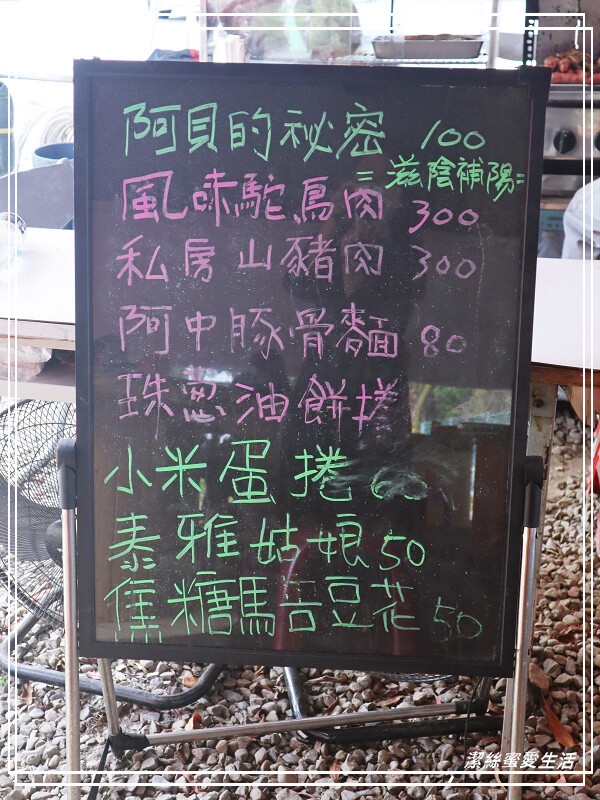 阿貝的祕密 100
=滋陰補陽=
風味駝鳥肉 300
私房山豬肉 300
阿中豚骨麵 80
珠蔥油餅捲
小米蛋捲
泰雅姑娘 50
焦糖馬告豆花 50
潔絲蜜愛生活